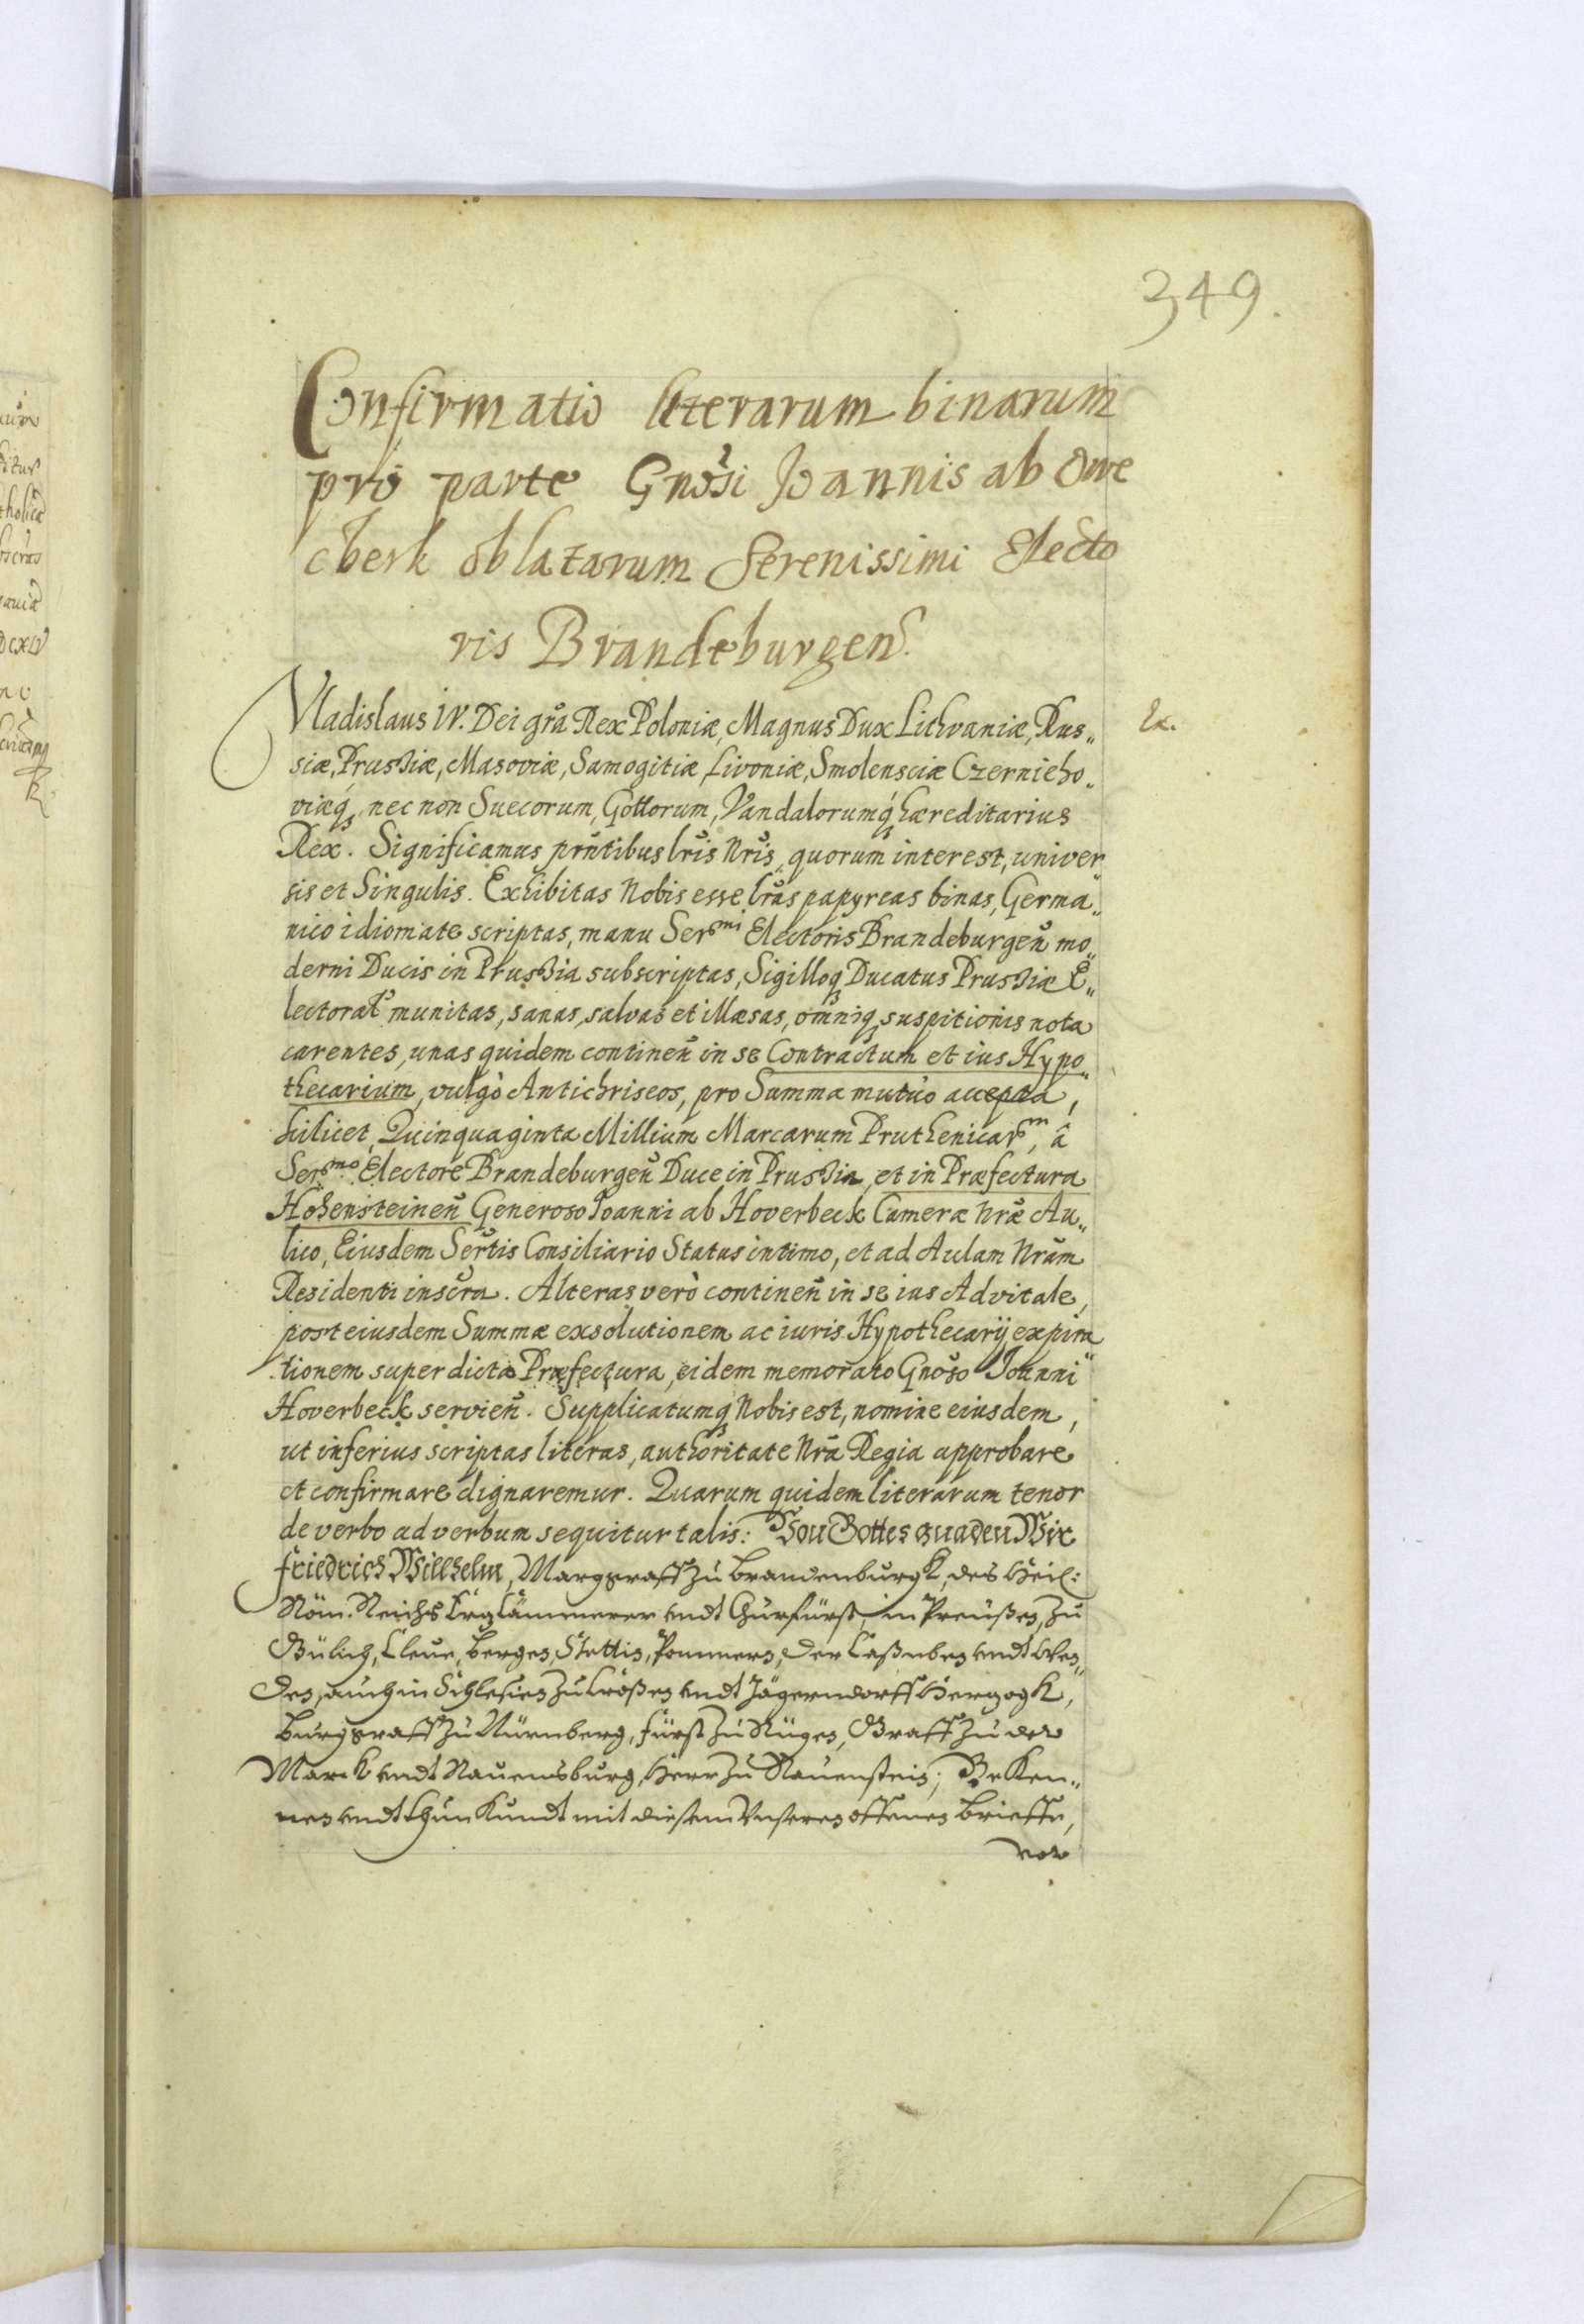 349.
Confirmatio literarum binarum
pro parte Gnosi Joannis ab Ove
cberk oblatarum Serenissimi Electo
ris Brandeburgen.
Vladislaus IV. Dei gra Rex Poloniæ, Magnus Dux Lithvaniæ, Rus„
siæ, Prussiæ, Masoviæ, Samogitiæ, Livoniæ, Smolensciæ Czernieho„
viæq, nec non Suecorum, Gottorum, Vandalorumq hæreditarius
Rex. Significamus prntibus lris Nris, quorum interest, univer„
sis et Singulis. Exhibitas Nobis esse lras papyreas binas, Germa„
nico idiomate scriptas, manu Sermi Electoris Brandeburgen mo„
derni Ducis in Prussia subscriptas, Sigilloq Ducatus Prussiæ E„
lectorat munitas, sanas, salvas et illæsas, omniq suspitionis nota
carentes, unas quidem continen in se Contractum et ius Hypo„
thecarium, vulgò Antichriseos, pro Summa mutuo accepta,
scilicet, Quinquaginta Millium Marcarum Pruthenicarm, â
Sermo Electore Brandeburgen Duce in Prussia, et in Præfectura
Hohensteinen Generoso Joanni ab Hoverbeck Cameræ Nræ Au„
lico, Eiusdem Sertis Consiliario Status intimo, et ad Aulam Nram
Residenti inscra. Alteras verò continen in se ius Advitale,
post eiusdem Summæ exsolutionem ac iuris Hypothecarij expira„
tionem super dicta Præfectura, eidem memorato Gnoso Joanni
Hoverbeck servien. Supplicatumq Nobis est, nomine eiusdem,
ut inferius scriptas literas, authoritate Nra Regia approbare
et confirmare dignaremur. Quarum quidem literarum tenor
de verbo ad verbum sequitur talis: Von Gottes gnaden Wir
Friedrich Willhelm, Marggraff zu Brandenburgk, des Heil:
Röm. Reichs Ertzkämmerer undt Churfürst, in Preußen, zu
Gülich, Cleve, Berge, Stettin, Pommern, der Caßuben undt Wen„
den, auch in Schlesien zu Croßen undt Jägerndorff Hertzogk,
Burggraff zu Nürnberg, Fürst zu Rügen, Graff zu der
Marck undt Ravensburg, Herr zu Ravenstein, Beken„
nen undt thun kundt mit diesem Unseren offenen Brieffe,
vor